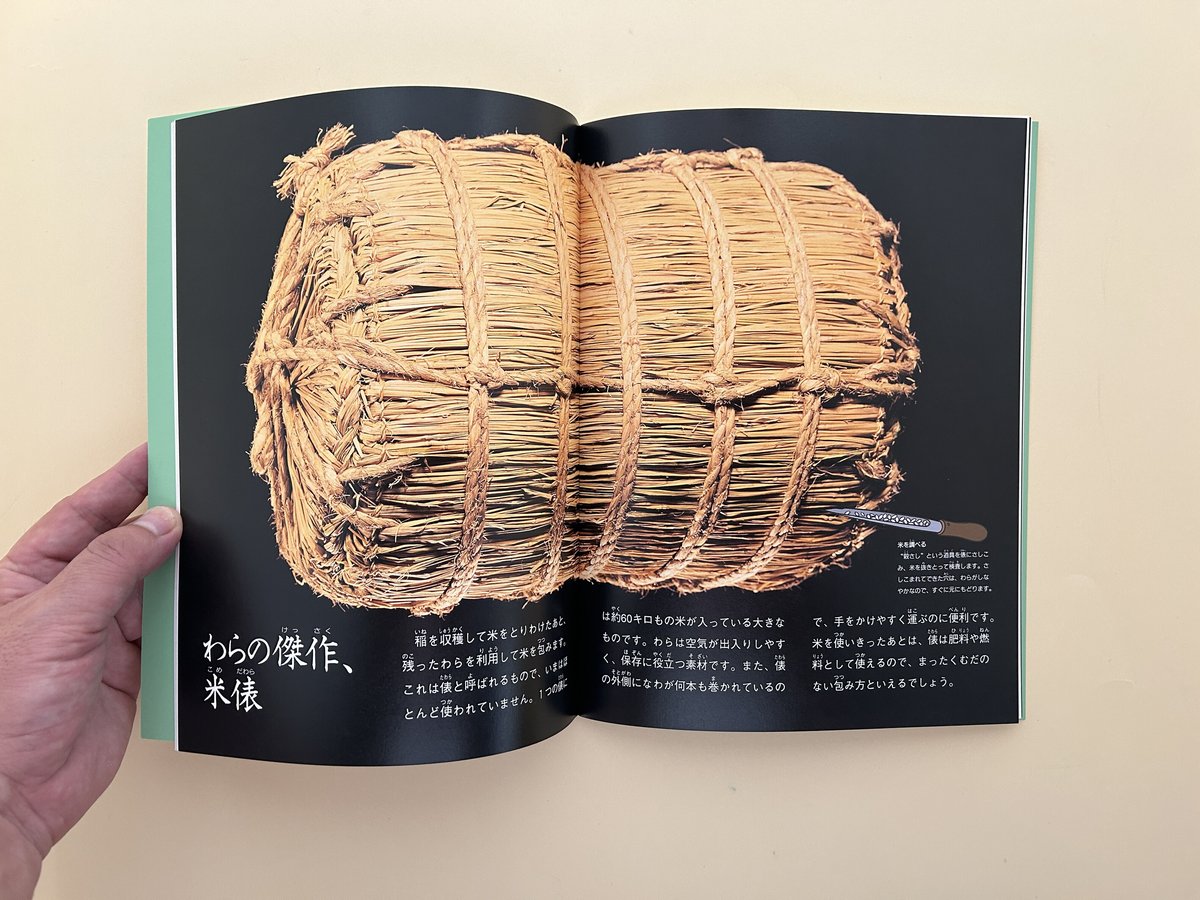 わらの傑作、
米俵
稲を収穫して米をとりわけたあと、
残ったわらを利用して米を包みます。
これは俵と呼ばれるもので、いまはほ
とんど使われていません。1つの俵に
は約60キロもの米が入っている大きな
ものです。わらは空気が出入りしやす
く、保存に役立つ素材です。また、俵
の外側になわが何本も巻かれているの
で、手をかけやすく運ぶのに便利です。
米を使いきったあとは、俵は肥料や燃
料として使えるので、まったくむだの
ない包み方といえるでしょう。
米を調べる
“穀さし”という道具を俵にさしこ
み、米を抜きとって検査します。さ
しこまれてできた穴は、わらがしな
やかなので、すぐに元にもどります。